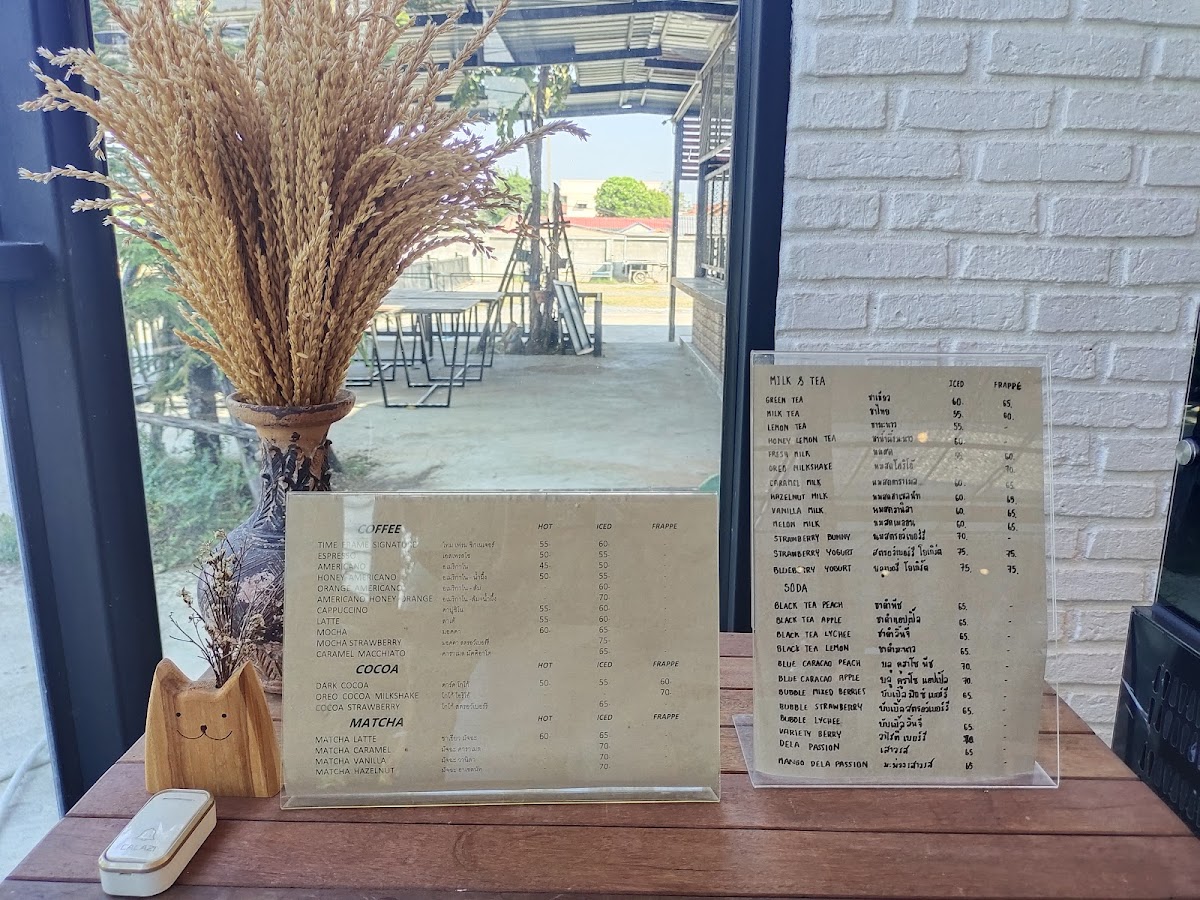 COFFEE HOT ICED FRAPPE
TIME FRAME SIGNATURE ไทม์ เฟรม ซิกเนเจอร์ 55- 60- -
ESPRESSO เอสเพรสโซ 50- 55- -
AMERICANO อเมริกาโน 45- 50- -
HONEY AMERICANO อเมริกาโน-น้ำผึ้ง 50- 55- -
ORANGE AMERICANO อเมริกาโน-ส้ม 60-
AMERICANO HONEY ORANGE อเมริกาโน-ส้มน้ำผึ้ง 70
CAPPUCCINO คาปูชิโน 55- 60-
LATTE ลาเต้ 55- 60-
MOCHA มอคค่า 60- 65-
MOCHA STRAWBERRY มอคค่า สตรอว์เบอร์รี 75
CARAMEL MACCHIATO คาราเมล มัคคิอาโต 65-
COCOA HOT ICED FRAPPE
DARK COCOA ดาร์ค โกโก้ 50 55 60-
OREO COCOA MILKSHAKE โกโก้ โอริโอ้ 70-
COCOA STRAWBERRY โกโก้ สตรอว์เบอร์รี 65-
MATCHA HOT ICED FRAPPE
MATCHA LATTE ชาเขียว มัจฉะ 60 65- -
MATCHA CARAMEL มัจฉะ คาราเมล 70 -
MATCHA VANILLA มัจฉะ วานิลา 70 -
MATCHA HAZELNUT มัจฉะ ฮาเซลนัท 70 -
MILK & TEA ICED FRAPPE
GREEN TEA ชาเขียว 60. 65.
MILK TEA ชาไทย 55. 60.
LEMON TEA ชามะนาว 55. -
HONEY LEMON TEA ชาน้ำผึ้งมะนาว 60. -
FRESH MILK นมสด 55 60.
OREO MILKSHAKE นมสดโอริโอ้ 70.
CARAMEL MILK นมสดคาราเมล 60. 65
HAZELNUT MILK นมสดฮาเซลนัท 60. 65.
VANILLA MILK นมสดวานิลา 60. 65.
MELON MILK นมสดเมลอน 60. 65.
STRAWBERRY BUNNY นมสตรอเบอร์รี่ 70. -
STRAWBERRY YOGURT สตรอเบอร์รี่ โยเกิร์ต 75. 75.
BLUEBERRY YOGURT บลูเบอรี่ โยเกิร์ต 75. 75.
SODA
BLACK TEA PEACH ชาดำพีช 65. -
BLACK TEA APPLE ชาดำแอปเปิ้ล 65. -
BLACK TEA LYCHEE ชาดำลิ้นจี่ 65. -
BLACK TEA LEMON ชาดำมะนาว 65. -
BLUE CARACAO PEACH บลู คราโซ พีช 70. -
BLUE CARACAO APPLE บลู คราโซ แอปเปิ้ล 70. -
BUBBLE MIXED BERRIES บับเบิ้ล มิกซ์ เบอร์รี่ 65. -
BUBBLE STRAWBERRY บับเบิ้ล สตรอว์เบอร์รี่ 65. -
BUBBLE LYCHEE บับเบิ้ล ลิ้นจี่ 65. -
VARIETY BERRY วาไรตี้ เบอร์รี่ 70. -
DELA PASSION เสาวรส 65 -
MANGO DELA PASSION มะม่วงเสาวรส 65 -